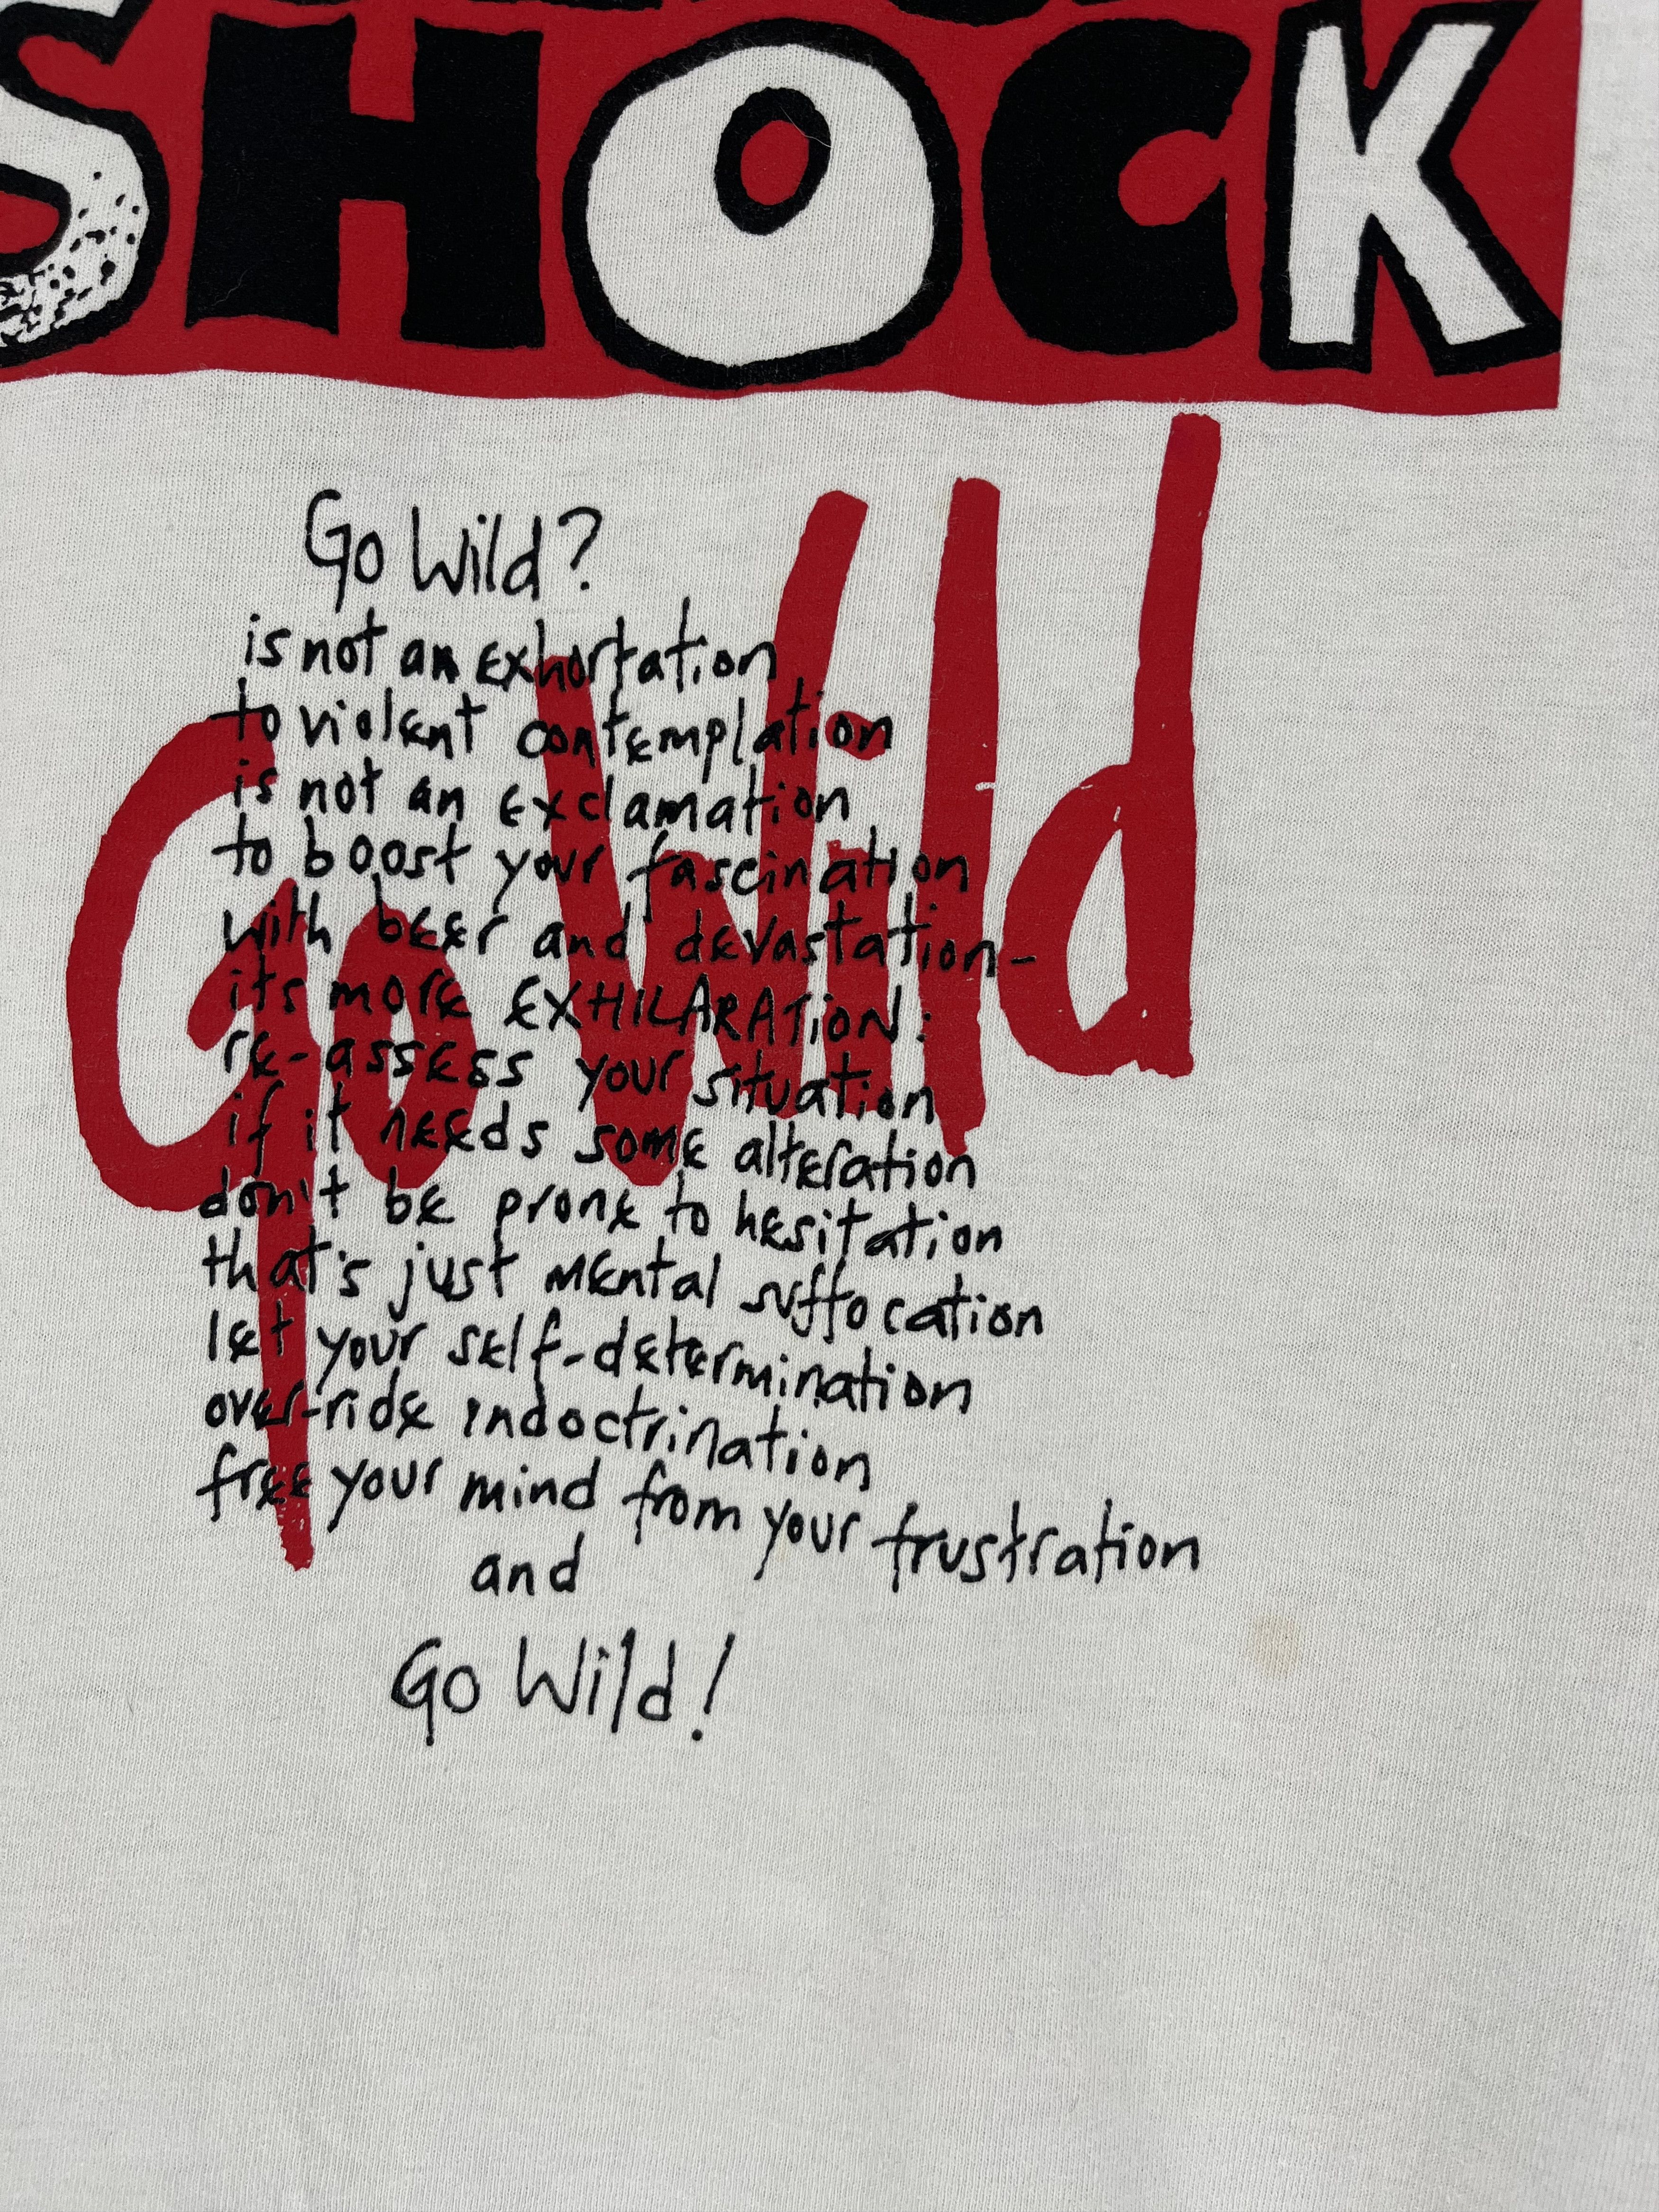 SHOCK
Go Wild
Go Wild?
is not an exhortation
to violent contemplation
is not an exclamation
to boost your fascination
with beer and devastation-
its more EXHILARATION:
re-assess your situation
if it needs some alteration
don't be prone to hesitation
that's just mental suffocation
let your self-determination
over-ride indoctrination
free your mind from your frustration
and
Go Wild!